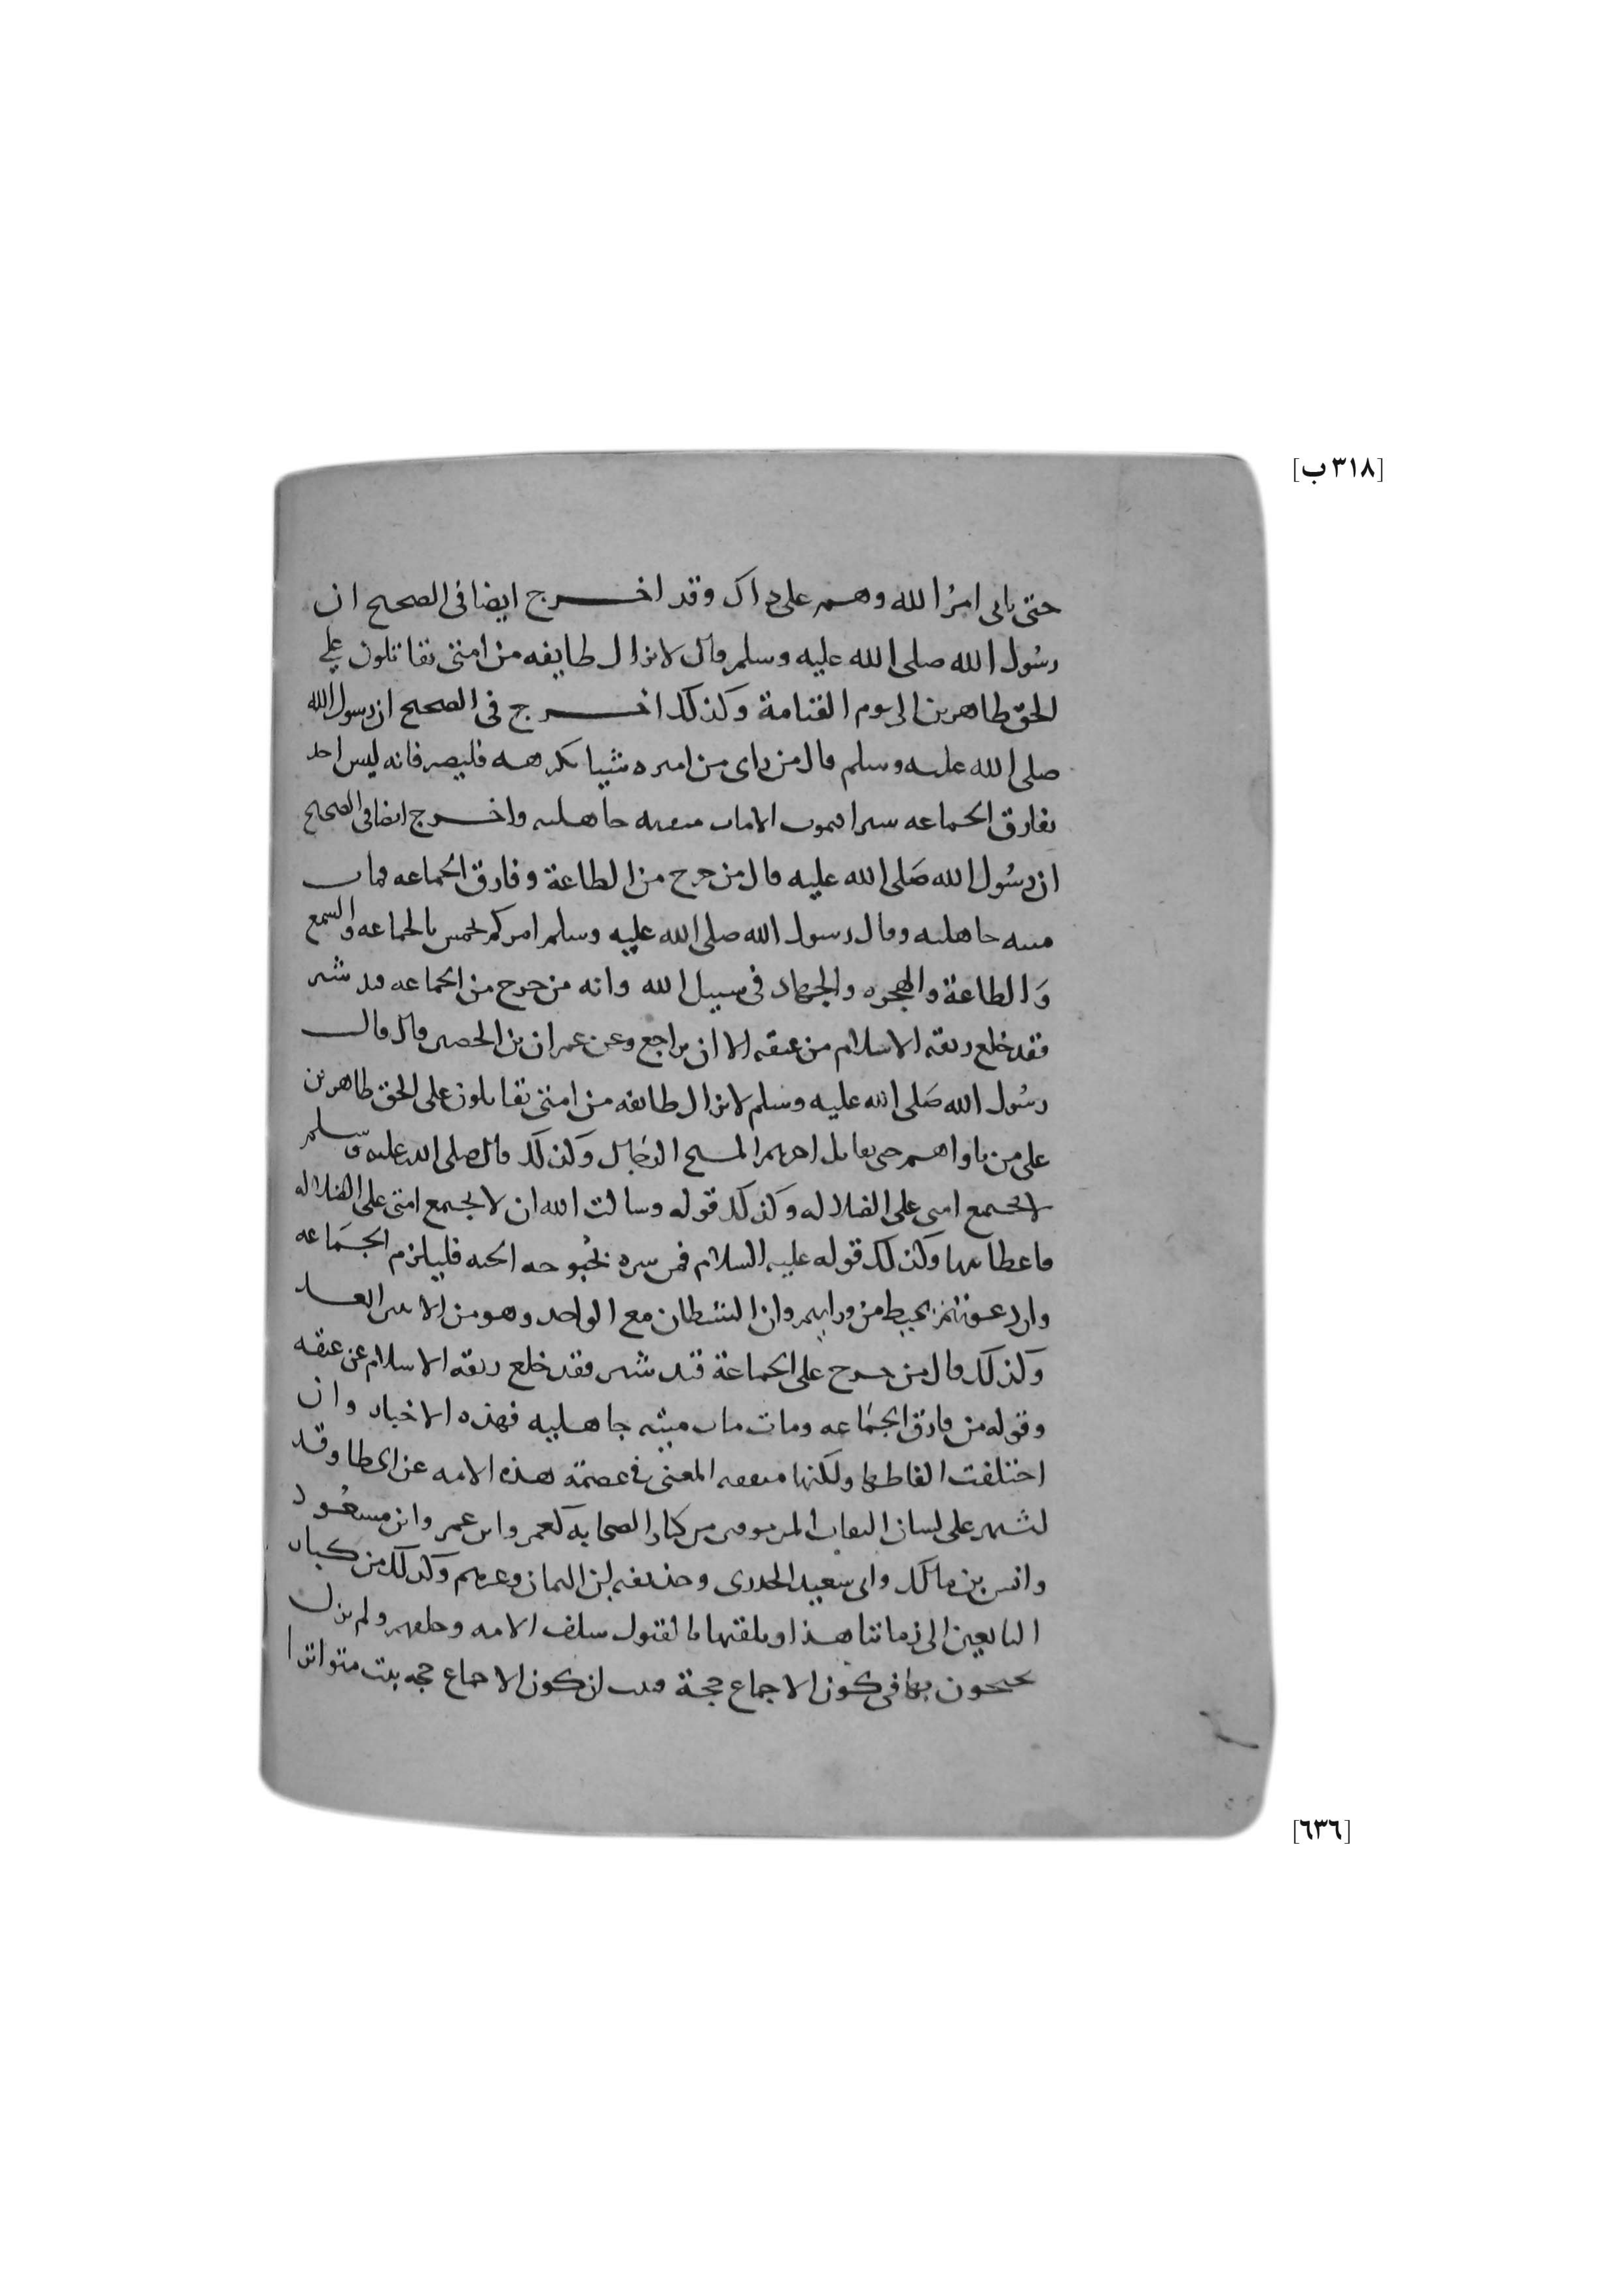 [٣١٨ ب]
حتى ياتى امر الله وهم على ذاك وقد اخرج ايضا فى الصحيح ان
رسول الله صلى الله عليه وسلم قال لا تزال طايفه من امتى تقاتلون على
الحق ظاهرين الى يوم القيامة وكذلك اخرج فى الصحيح ان رسول الله
صلى الله عليه وسلم قال من راى من اميره شيا يكرهه فليصبر فانه ليس احد
يفارق الجماعه شبرا فيموت الا مات ميته جاهليه واخرج ايضا فى الصحيح
ان رسول الله صلى الله عليه قال من خرج من الطاعة وفارق الجماعه فمات
ميته جاهليه وقال رسول الله صلى الله عليه وسلم امركم بخمس بالجماعه والسمع
والطاعة والهجره والجهاد فى سبيل الله وانه من خرج من الجماعه قيد شبر
فقد خلع ربقه الاسلام من عنقه الا ان يراجع وعن عمران بن الحصين قال قال
رسول الله صلى الله عليه وسلم لا تزال طايفه من امتى تقاتلون على الحق ظاهرين
على من ناواهم حتى يقاتل اخرهم المسيح الدجال وكذلك قال صلى الله عليه وسلم
لا تجتمع امتى على الضلاله وكذلك قوله وسالت الله ان لا يجمع امتى على الضلاله
فاعطانيها وكذلك قوله عليه السلام فمن سره بحبوحه الجنه فليلزم الجماعه
وان دعوتهم تحيط من ورايهم وان الشيطان مع الواحد وهو من الاثنين ابعد
وكذلك قال من خرج على الجماعة قيد شبر فقد خلع ربقه الاسلام عن عنقه
وقوله من فارق الجماعه ومات مات ميته جاهليه فهذه الاخبار وان
اختلفت الفاظها ولكنها متفقه المعنى فى عصمة هذه الامه عن الخطا وقد
اشتهر على لسان الثقات من كبار الصحابه كعمر وابن عمر وابن مسعود
وانس بن مالك وابى سعيد الخدرى وحذيفه بن اليمان وغيرهم وكذلك من كبار
التابعين الى زماننا هذا وتلقتها بالقبول سلف الامه وخلفهم ولم يزل
يحتجون بها فى كون الاجماع حجة كون الاجماع حجه متواترا
[٦٣٦]